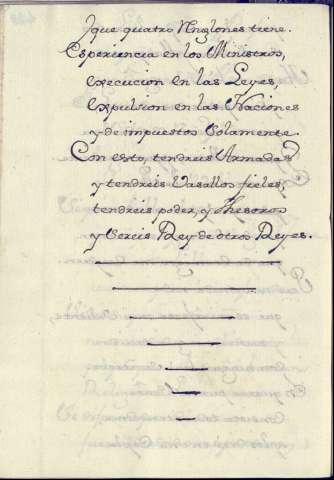 Y que quatro Renglones tiene.
Esperiencia en los Ministros,
execucion en las Leyes,
expulsion en las Naciones
y de impuestos Solamente.
Con esto, tendreis Armadas
y tendreis Vasallos fieles,
tendreis poder, y Thesoros
y Sereis Rey de otros Reyes.